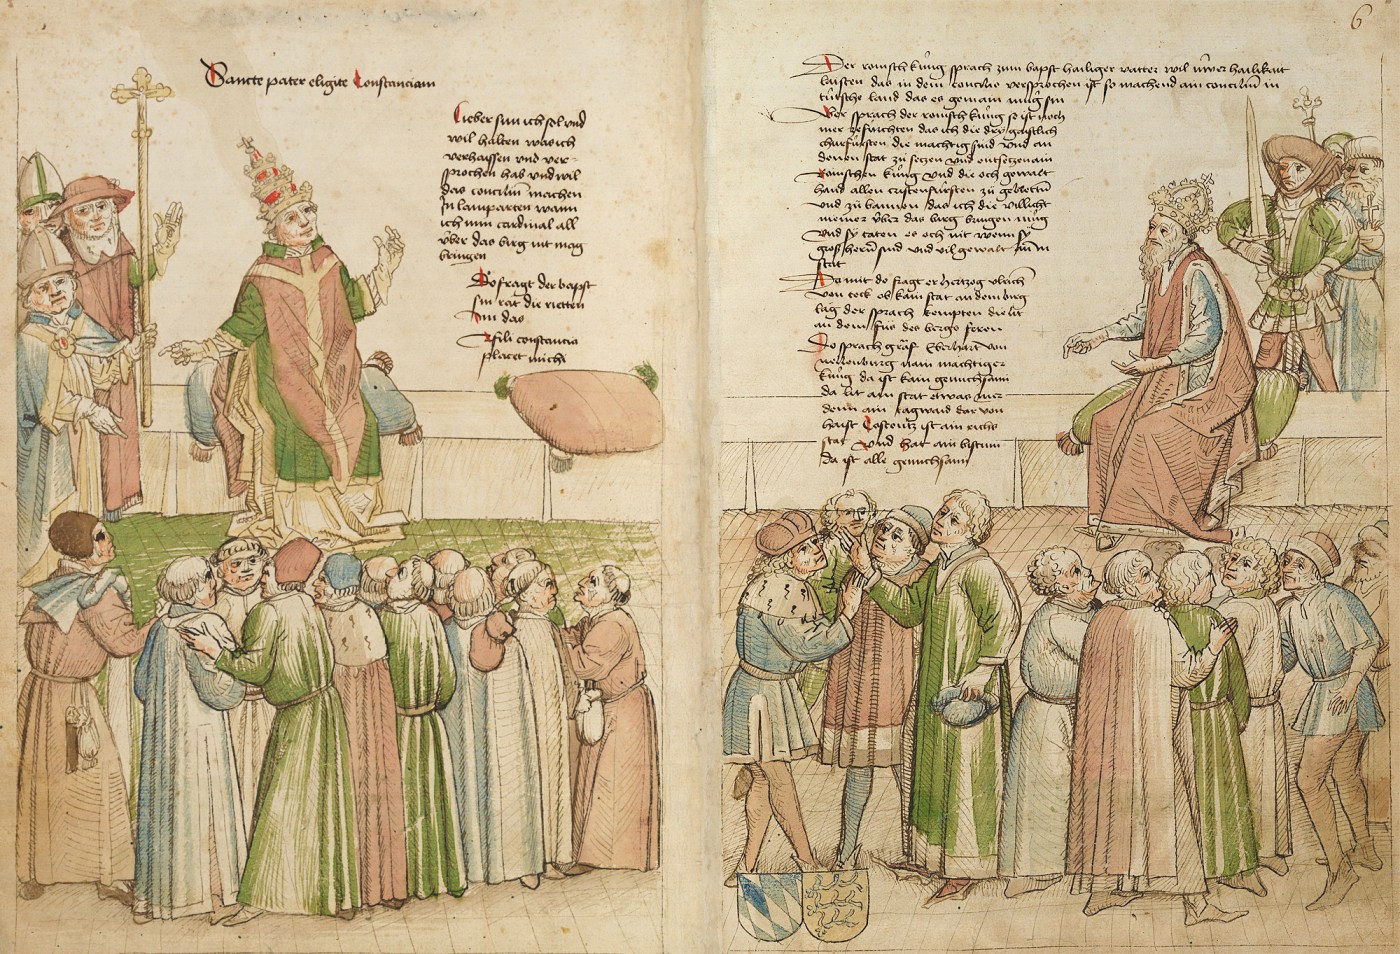 Sancte pater eligite Constanciam
Lieber sun ich sol und
wil halten was ich
verhaissen und ver-
sprochen hab und wil
das conciliū machen
In lamparten wann
ich min cardinal all
über das birg nit mag
bringen
Do fragt der bapst
sin rät die rietten
Im das
fili constancia
placet michi
6
Der romisch kūng sprach zum bapst hailiger vatter wil üwer hailikait
laisten das in dem concilio versprochen ist so machend ain conciliū in
tütsche land das es gemain müg sin
sprach der romisch küng so ist noch
mer ze fürchten das ich die dry gaistlich
churfürsten die mächtig sind und an
denen stat zu setzen und entsetzen ain
Romischen küng und die och gewalt
hand allen cristenfürsten zu gebietten
und zu bannen das ich die villicht
meiner über das birg bringen müg
und sy täten es och nit wenn sy
gross herrn sind und vil gewalt an in
stat
Damit do fragt er hertzog ulrich
von teck ob kain stat an dem birg
läg der sprach kempten die lit
an dem füs des bergs
Do sprach gräf Eberhart von
nellenburg nain mächtiger
küng da ist kain gnuchsami
da lit ain stat etwas mer
denn ain tagwaid dar von
haist Costentz ist ain richs
stat und hat ain bistum
da ist alle gnuchsami